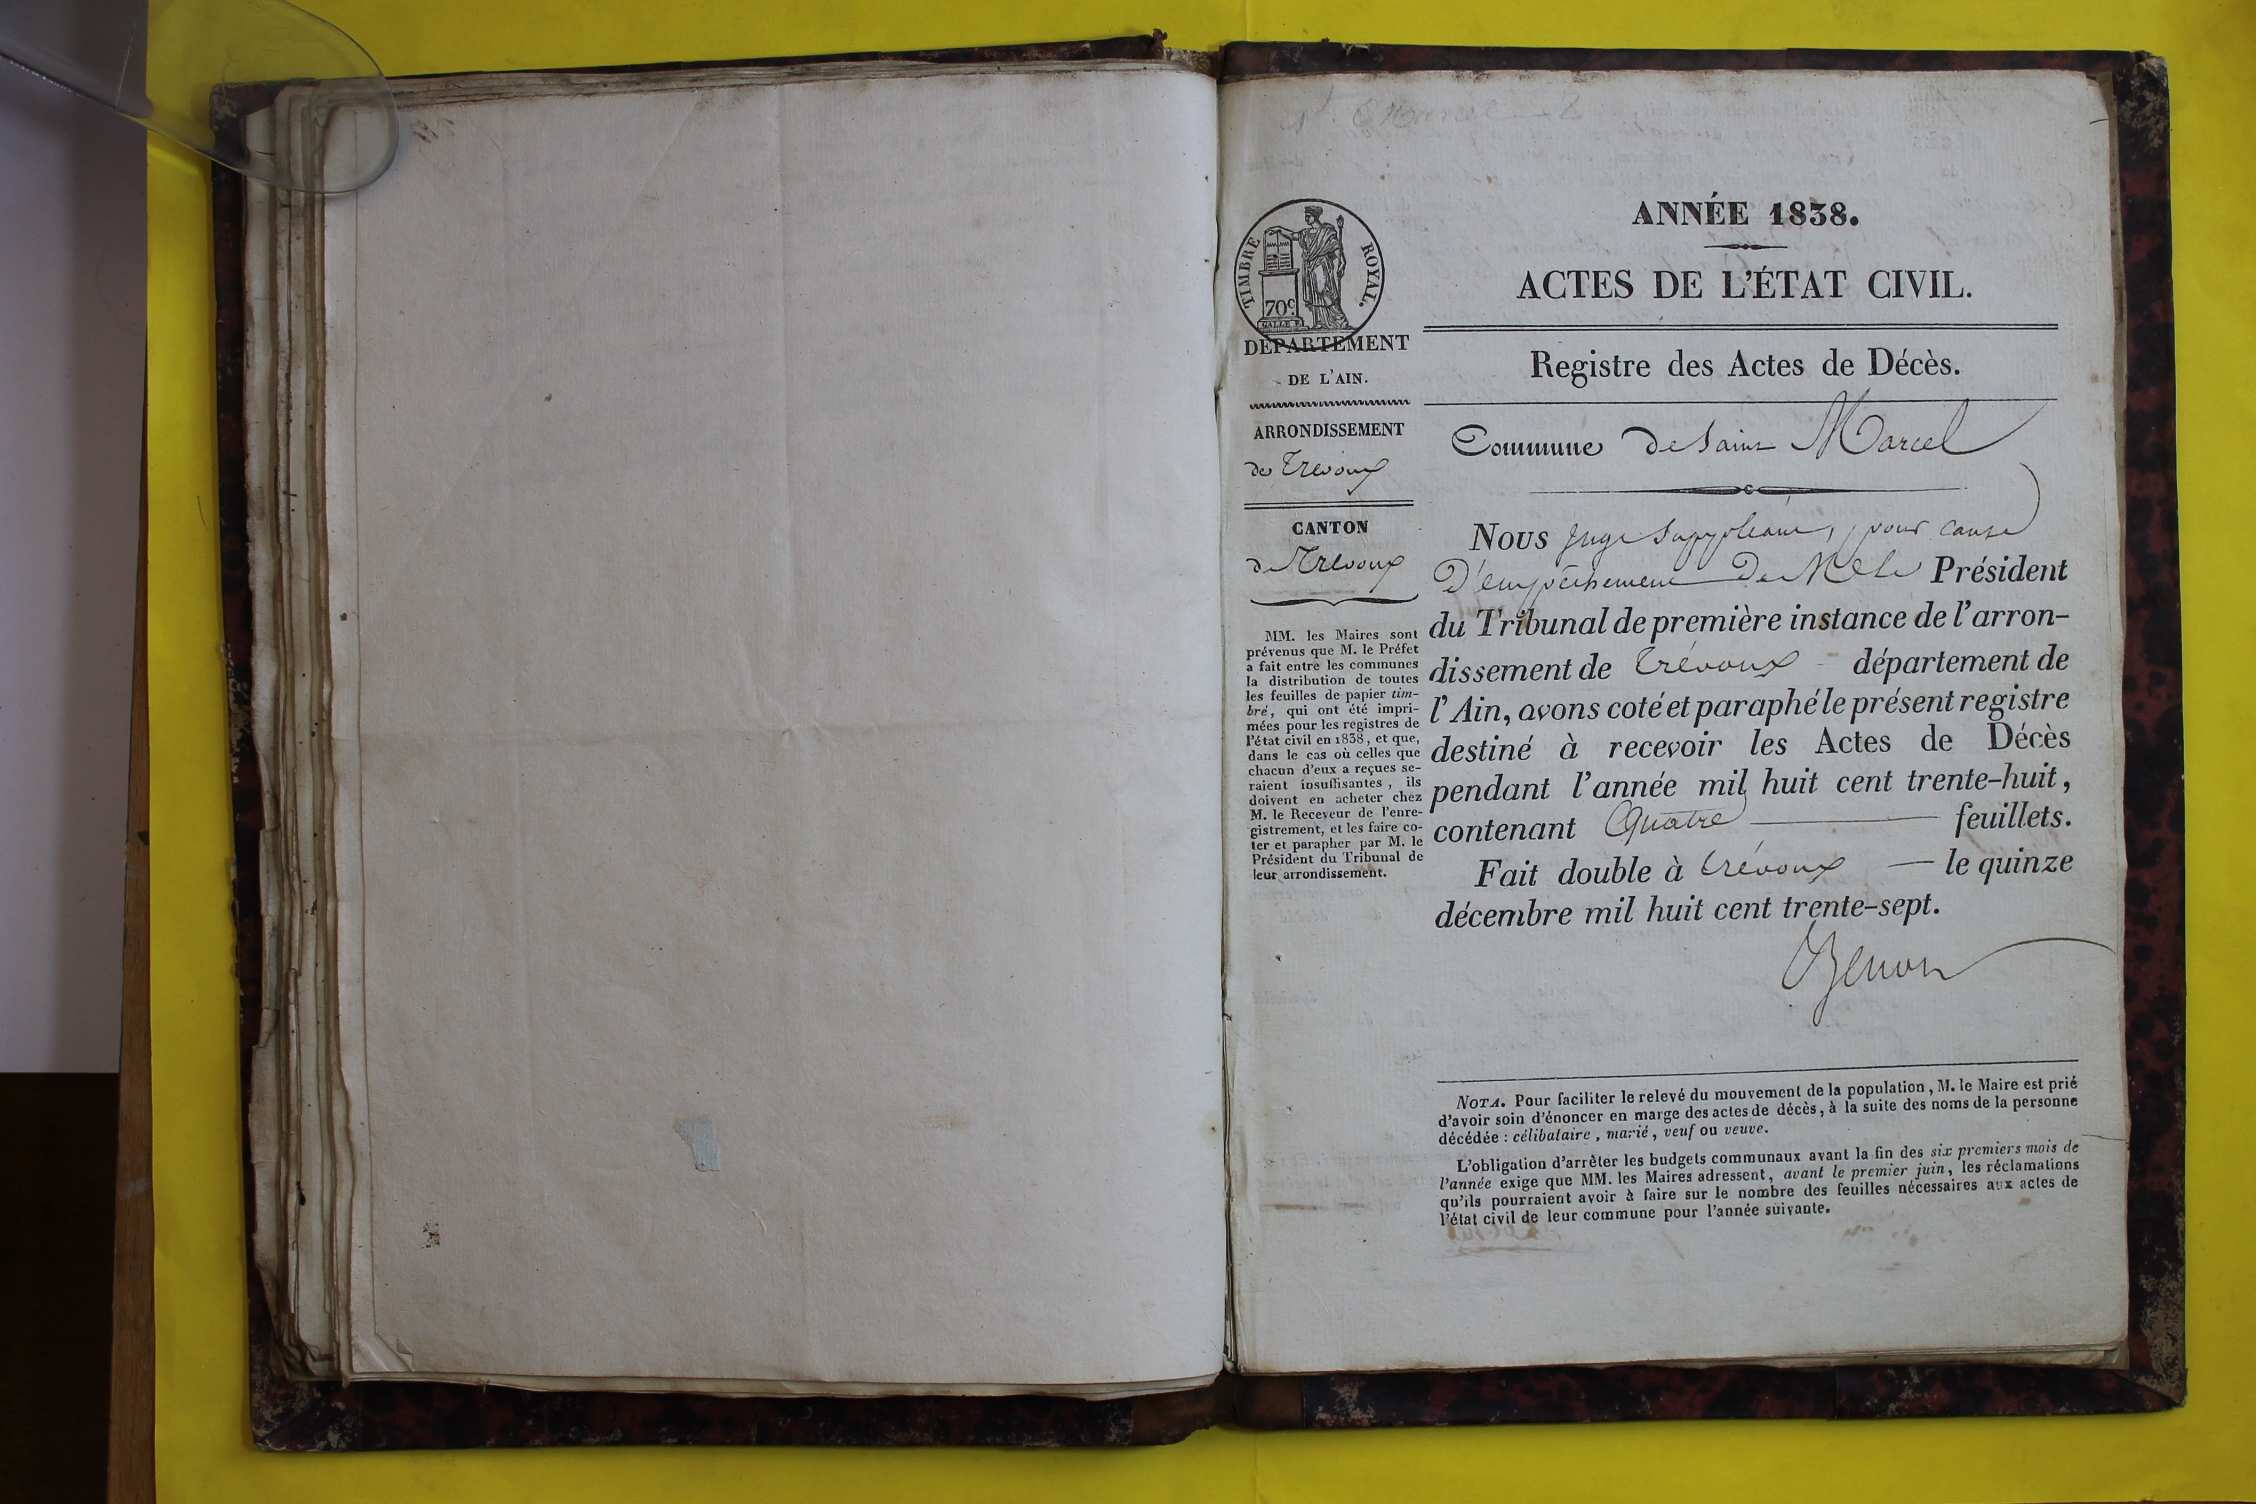 TIMBRE ROYAL.
70c.
DÉPARTEMENT
DE L'AIN.
ARRONDISSEMENT
de Trévoux
CANTON
de Trévoux
MM. les Maires sont
prévenus que M. le Préfet
a fait entre les communes
la distribution de toutes
les feuilles de papier tim-
bré, qui ont été impri-
mées pour les registres de
l'état civil en 1838, et que,
dans le cas où celles que
chacun d'eux a reçues se-
raient insuffisantes, ils
doivent en acheter chez
M. le Receveur de l'enre-
gistrement, et les faire co-
ter et parapher par M. le
Président du Tribunal de
leur arrondissement.
ANNÉE 1838.
ACTES DE L'ÉTAT CIVIL.
Registre des Actes de Décès.
Commune de Saint Marcel
Nous Juge Suppléant, pour cause
D'empêchement De M. le Président
du Tribunal de première instance de l'arron-
dissement de Trévoux département de
l'Ain, avons coté et paraphé le présent registre
destiné à recevoir les Actes de Décès
pendant l'année mil huit cent trente-huit,
contenant Quatre feuillets.
Fait double à Trévoux — le quinze
décembre mil huit cent trente-sept.
NOTA. Pour faciliter le relevé du mouvement de la population, M. le Maire est prié
d'avoir soin d'énoncer en marge des actes de décès, à la suite des noms de la personne
décédée : célibataire, marié, veuf ou veuve.
L'obligation d'arrêter les budgets communaux avant la fin des six premiers mois de
l'année exige que MM. les Maires adressent, avant le premier juin, les réclamations
qu'ils pourraient avoir à faire sur le nombre des feuilles nécessaires aux actes de
l'état civil de leur commune pour l'année suivante.